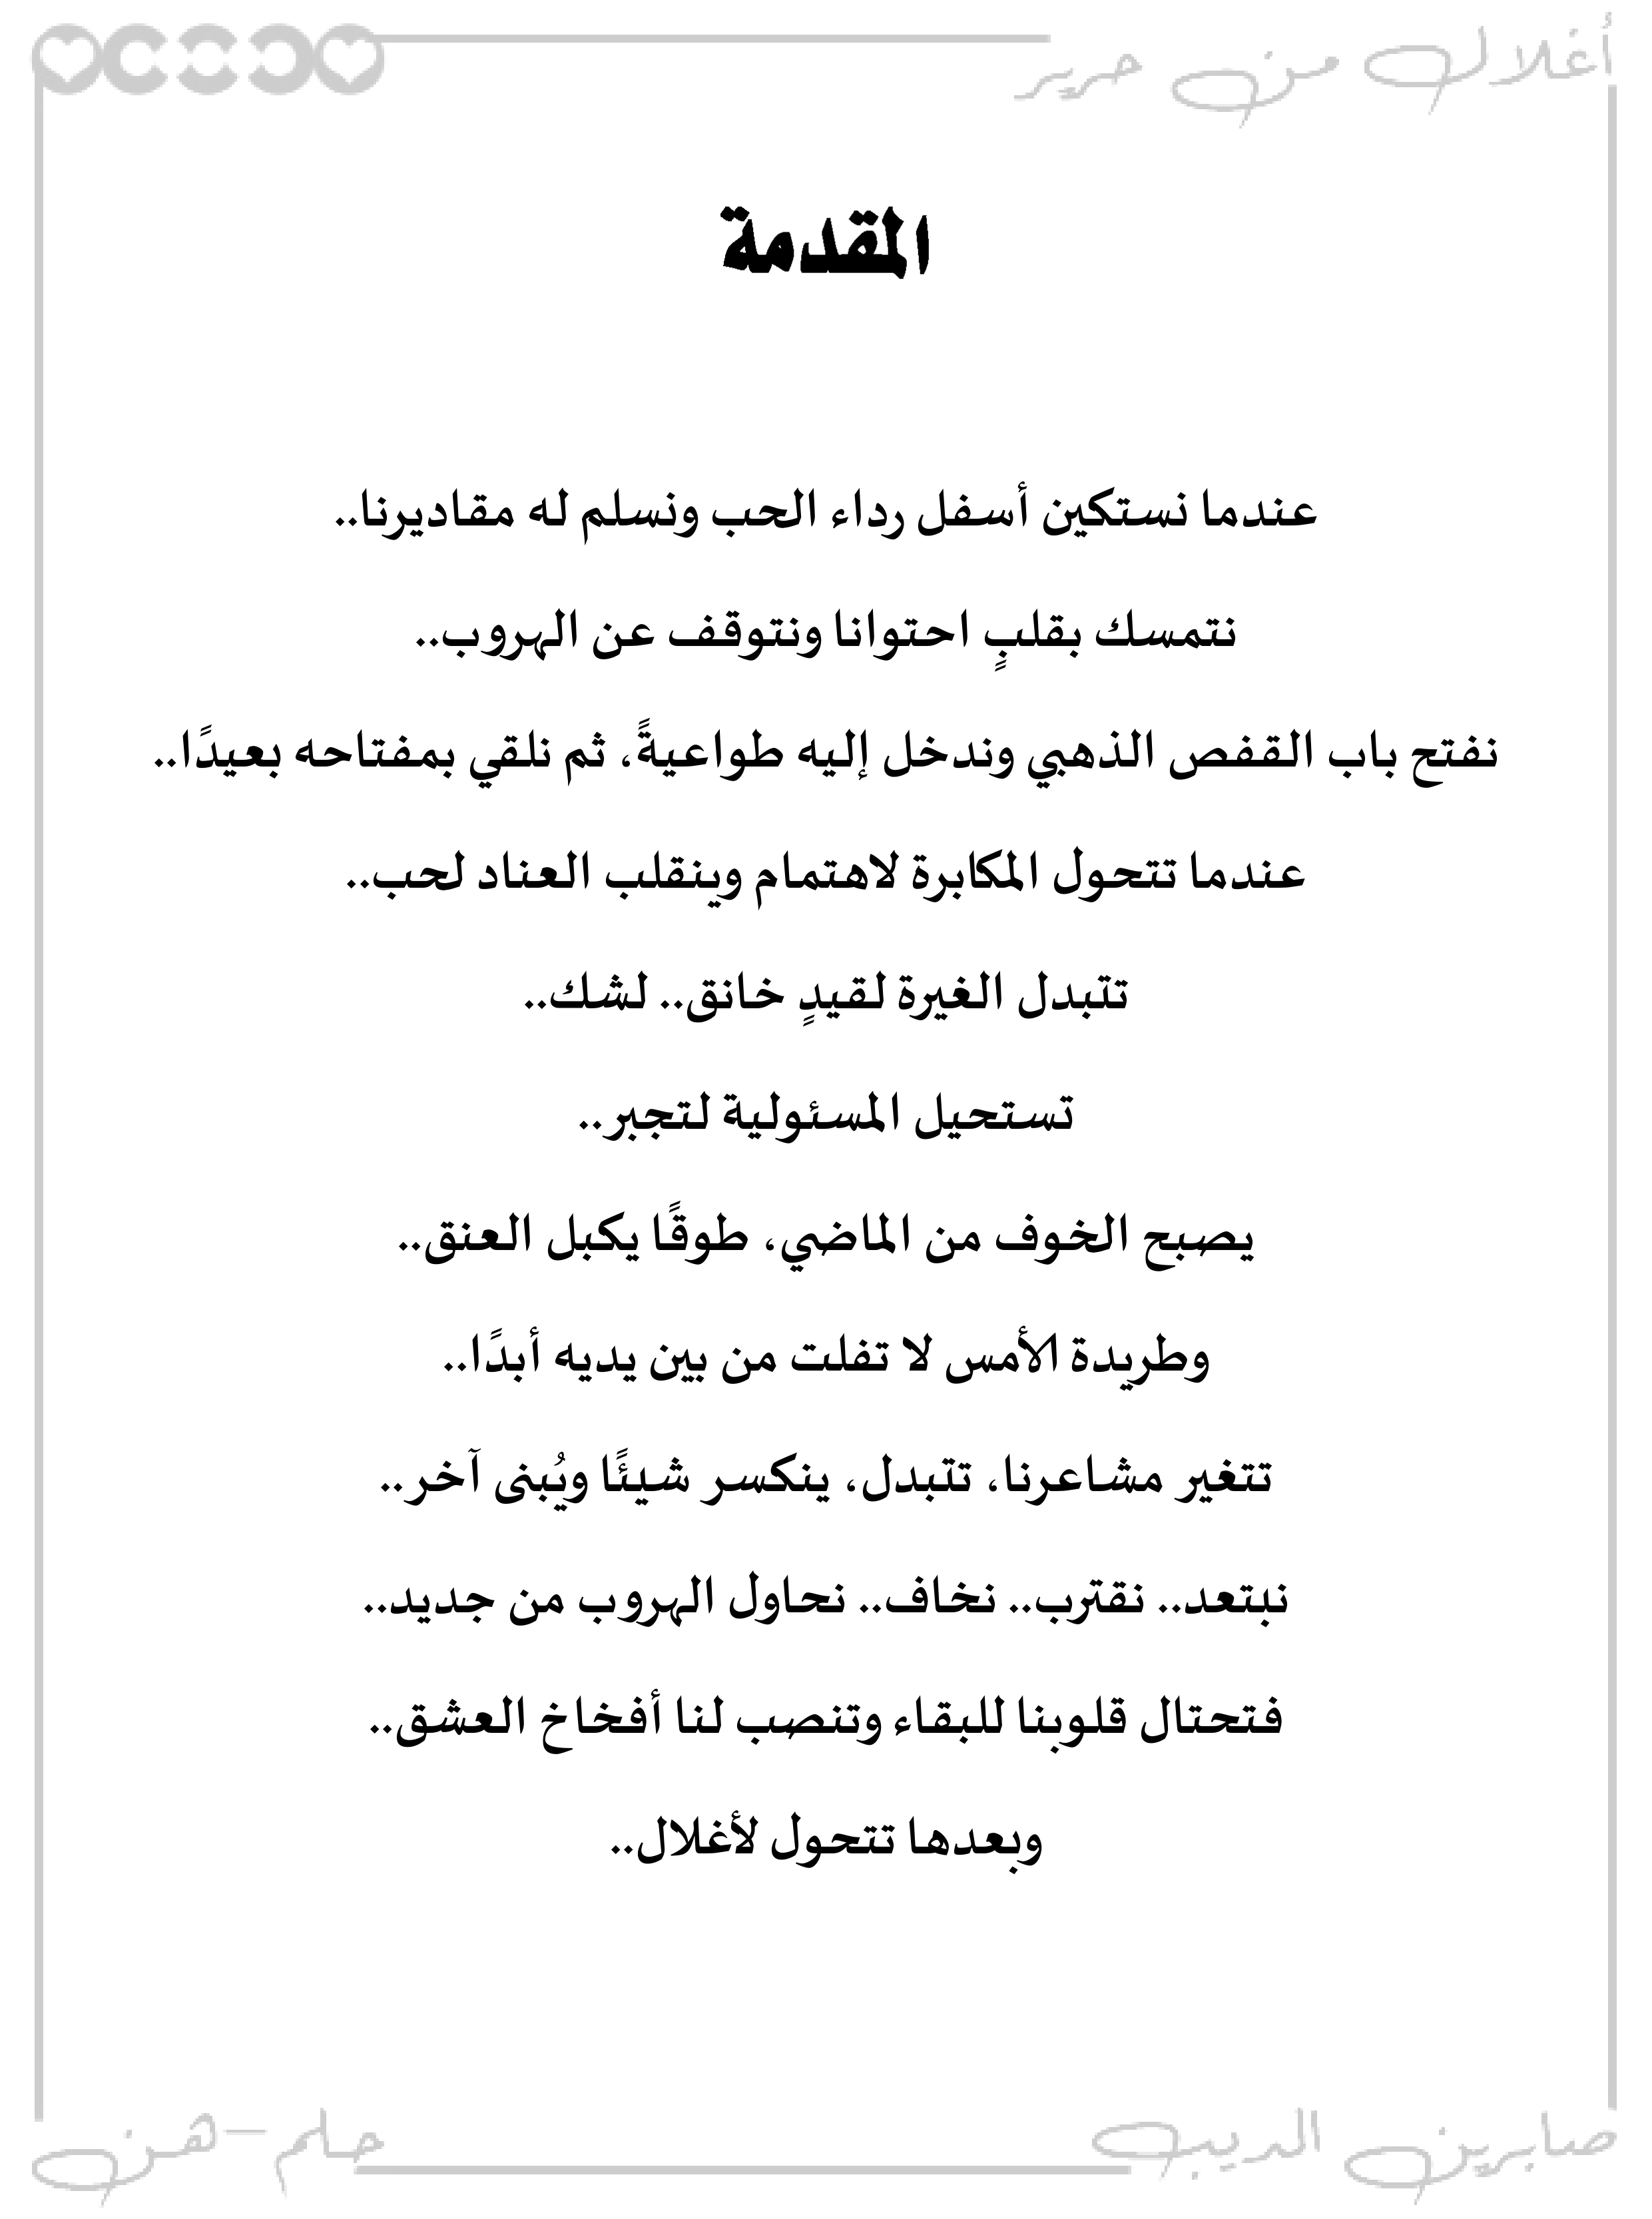 أغلال من حرير
المقدمة
عندما نستكين أسفل رداء الحب ونسلم له مقاديرنا..
نتمسك بقلبٍ احتوانا ونتوقف عن الهروب..
نفتح باب القفص الذهبي وندخل إليه طواعيةً، ثم نلقي بمفتاحه بعيدًا..
عندما تتحول المكابرة لاهتمام وينقلب العناد لحب..
تتبدل الغيرة لقيدٍ خانق.. لشك..
تستحيل المسئولية لتجبر..
يصبح الخوف من الماضي، طوقًا يكبل العنق..
وطريدة الأمس لا تفلت من بين يديه أبدًا..
تتغير مشاعرنا، تتبدل، ينكسر شيئًا ويُبنى آخر..
نبتعد.. نقترب.. نخاف.. نحاول الهروب من جديد..
فتحتال قلوبنا للبقاء وتنصب لنا أفخاخ العشق..
وبعدها تتحول لأغلال..
صابرين الديب
حلم-هن